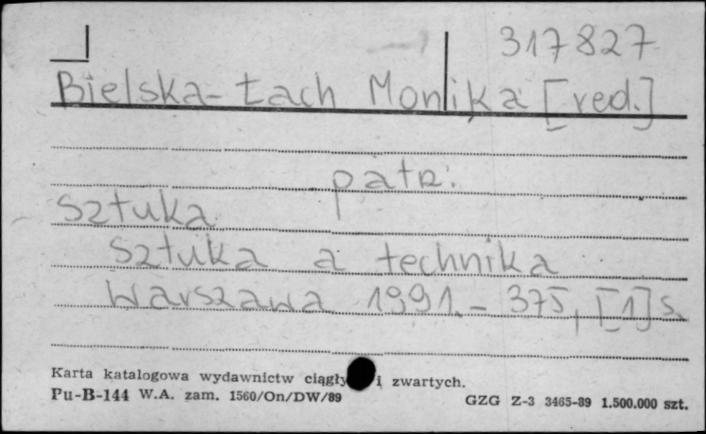 317827
Bielska-Łach Monika [red.]
patrz:
Sztuka
Sztuka a technika
Warszawa 1991. - 375, [1] s.
Karta katalogowa wydawnictw ciągły i zwartych.
Pu-B-144 W.A. zam. 1560/On/DW/89
GZG Z-3 3465-89 1.500.000 szt.